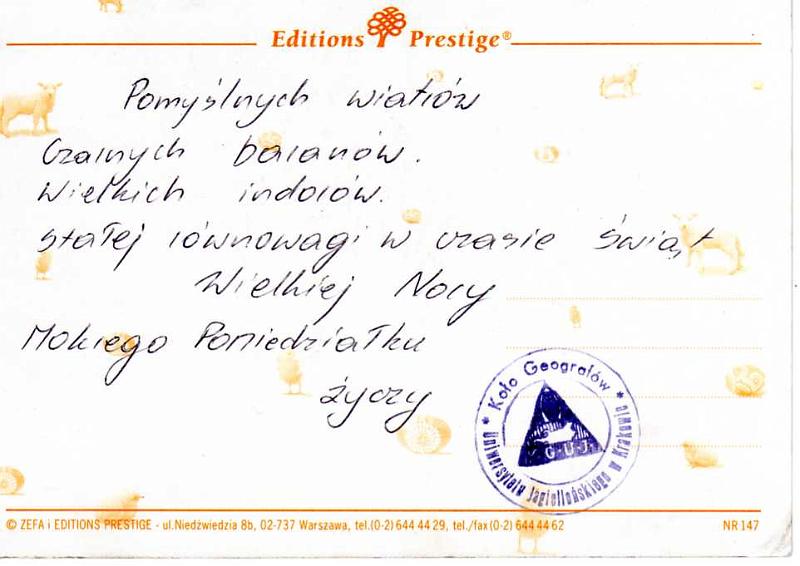 Editions Prestige®
Pomyślnych wiatrów
Czarnych baranów.
Wielkich indorów.
stałej równowagi w czasie świąt
Wielkiej Nocy
Mokrego Poniedziałku
życzy
* Koło Geografów *
Uniwersytetu Jagiellońskiego w Krakowie
K.G.U.J.
© ZEFA i EDITIONS PRESTIGE - ul.Niedźwiedzia 8b, 02-737 Warszawa, tel.(0-2) 644 44 29, tel./fax (0-2) 644 44 62
NR 147